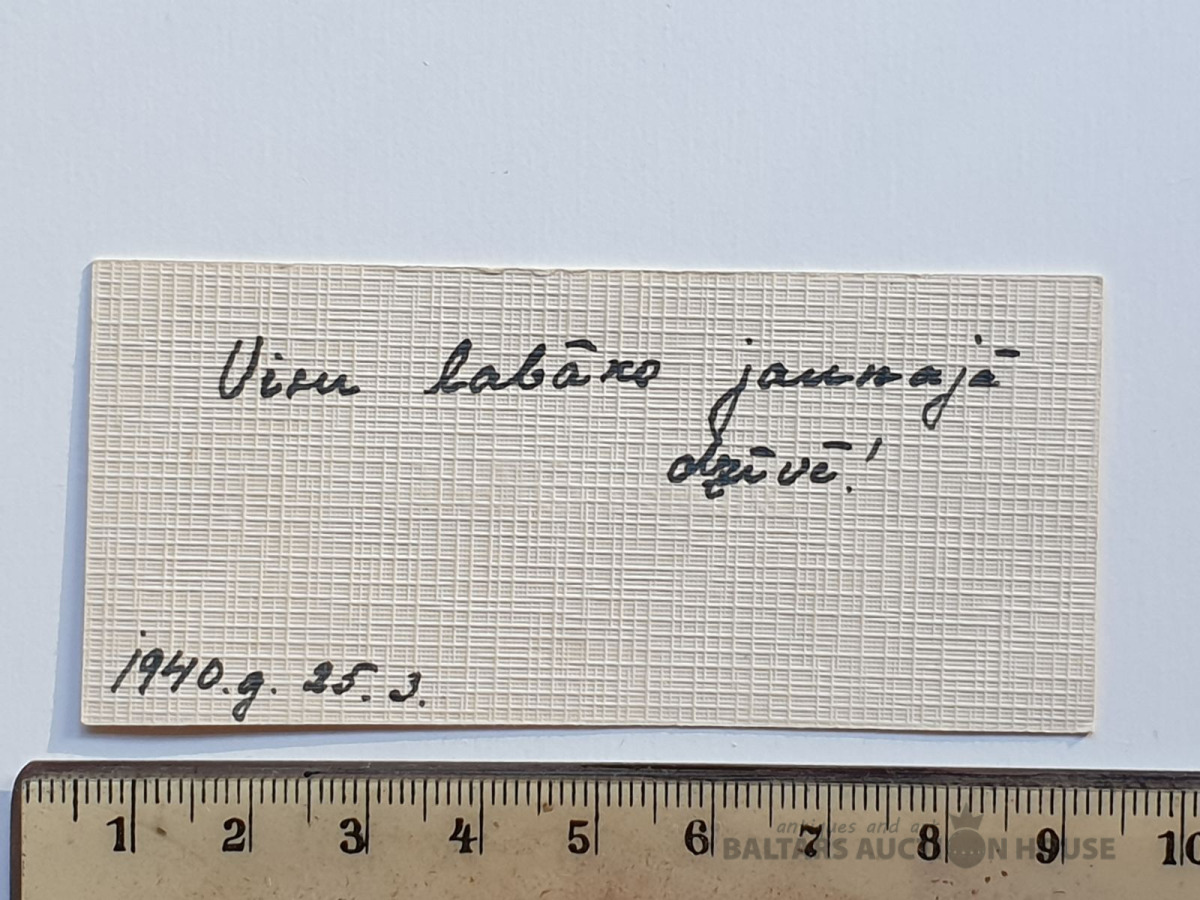 Visu labāko jaunajā
dzīvē!
1940.g. 25.3.
1 2 3 4 5 6 7 8 9 10
antiques and art
BALTARS AUCTION HOUSE